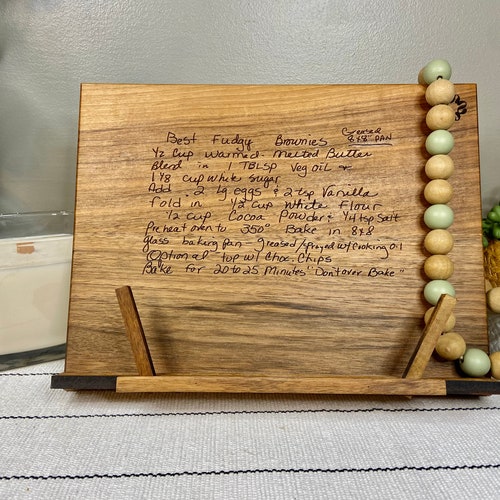 Best Fudgy Brownies Greased 8x8" PAN
1/2 cup warmed - melted Butter
Blend in 1 TBLSP Veg oil &
1 1/8 cup white sugar
Add 2 lg eggs & 2 tsp Vanilla
fold in 1/2 cup white Flour
1/2 cup Cocoa Powder & 1/4 tsp Salt
Preheat oven to 350° Bake in 8x8
glass baking pan greased/sprayed w/ cooking oil
(Optional top w/ Choc. Chips
Bake for 20 to 25 Minutes "Dont over Bake"